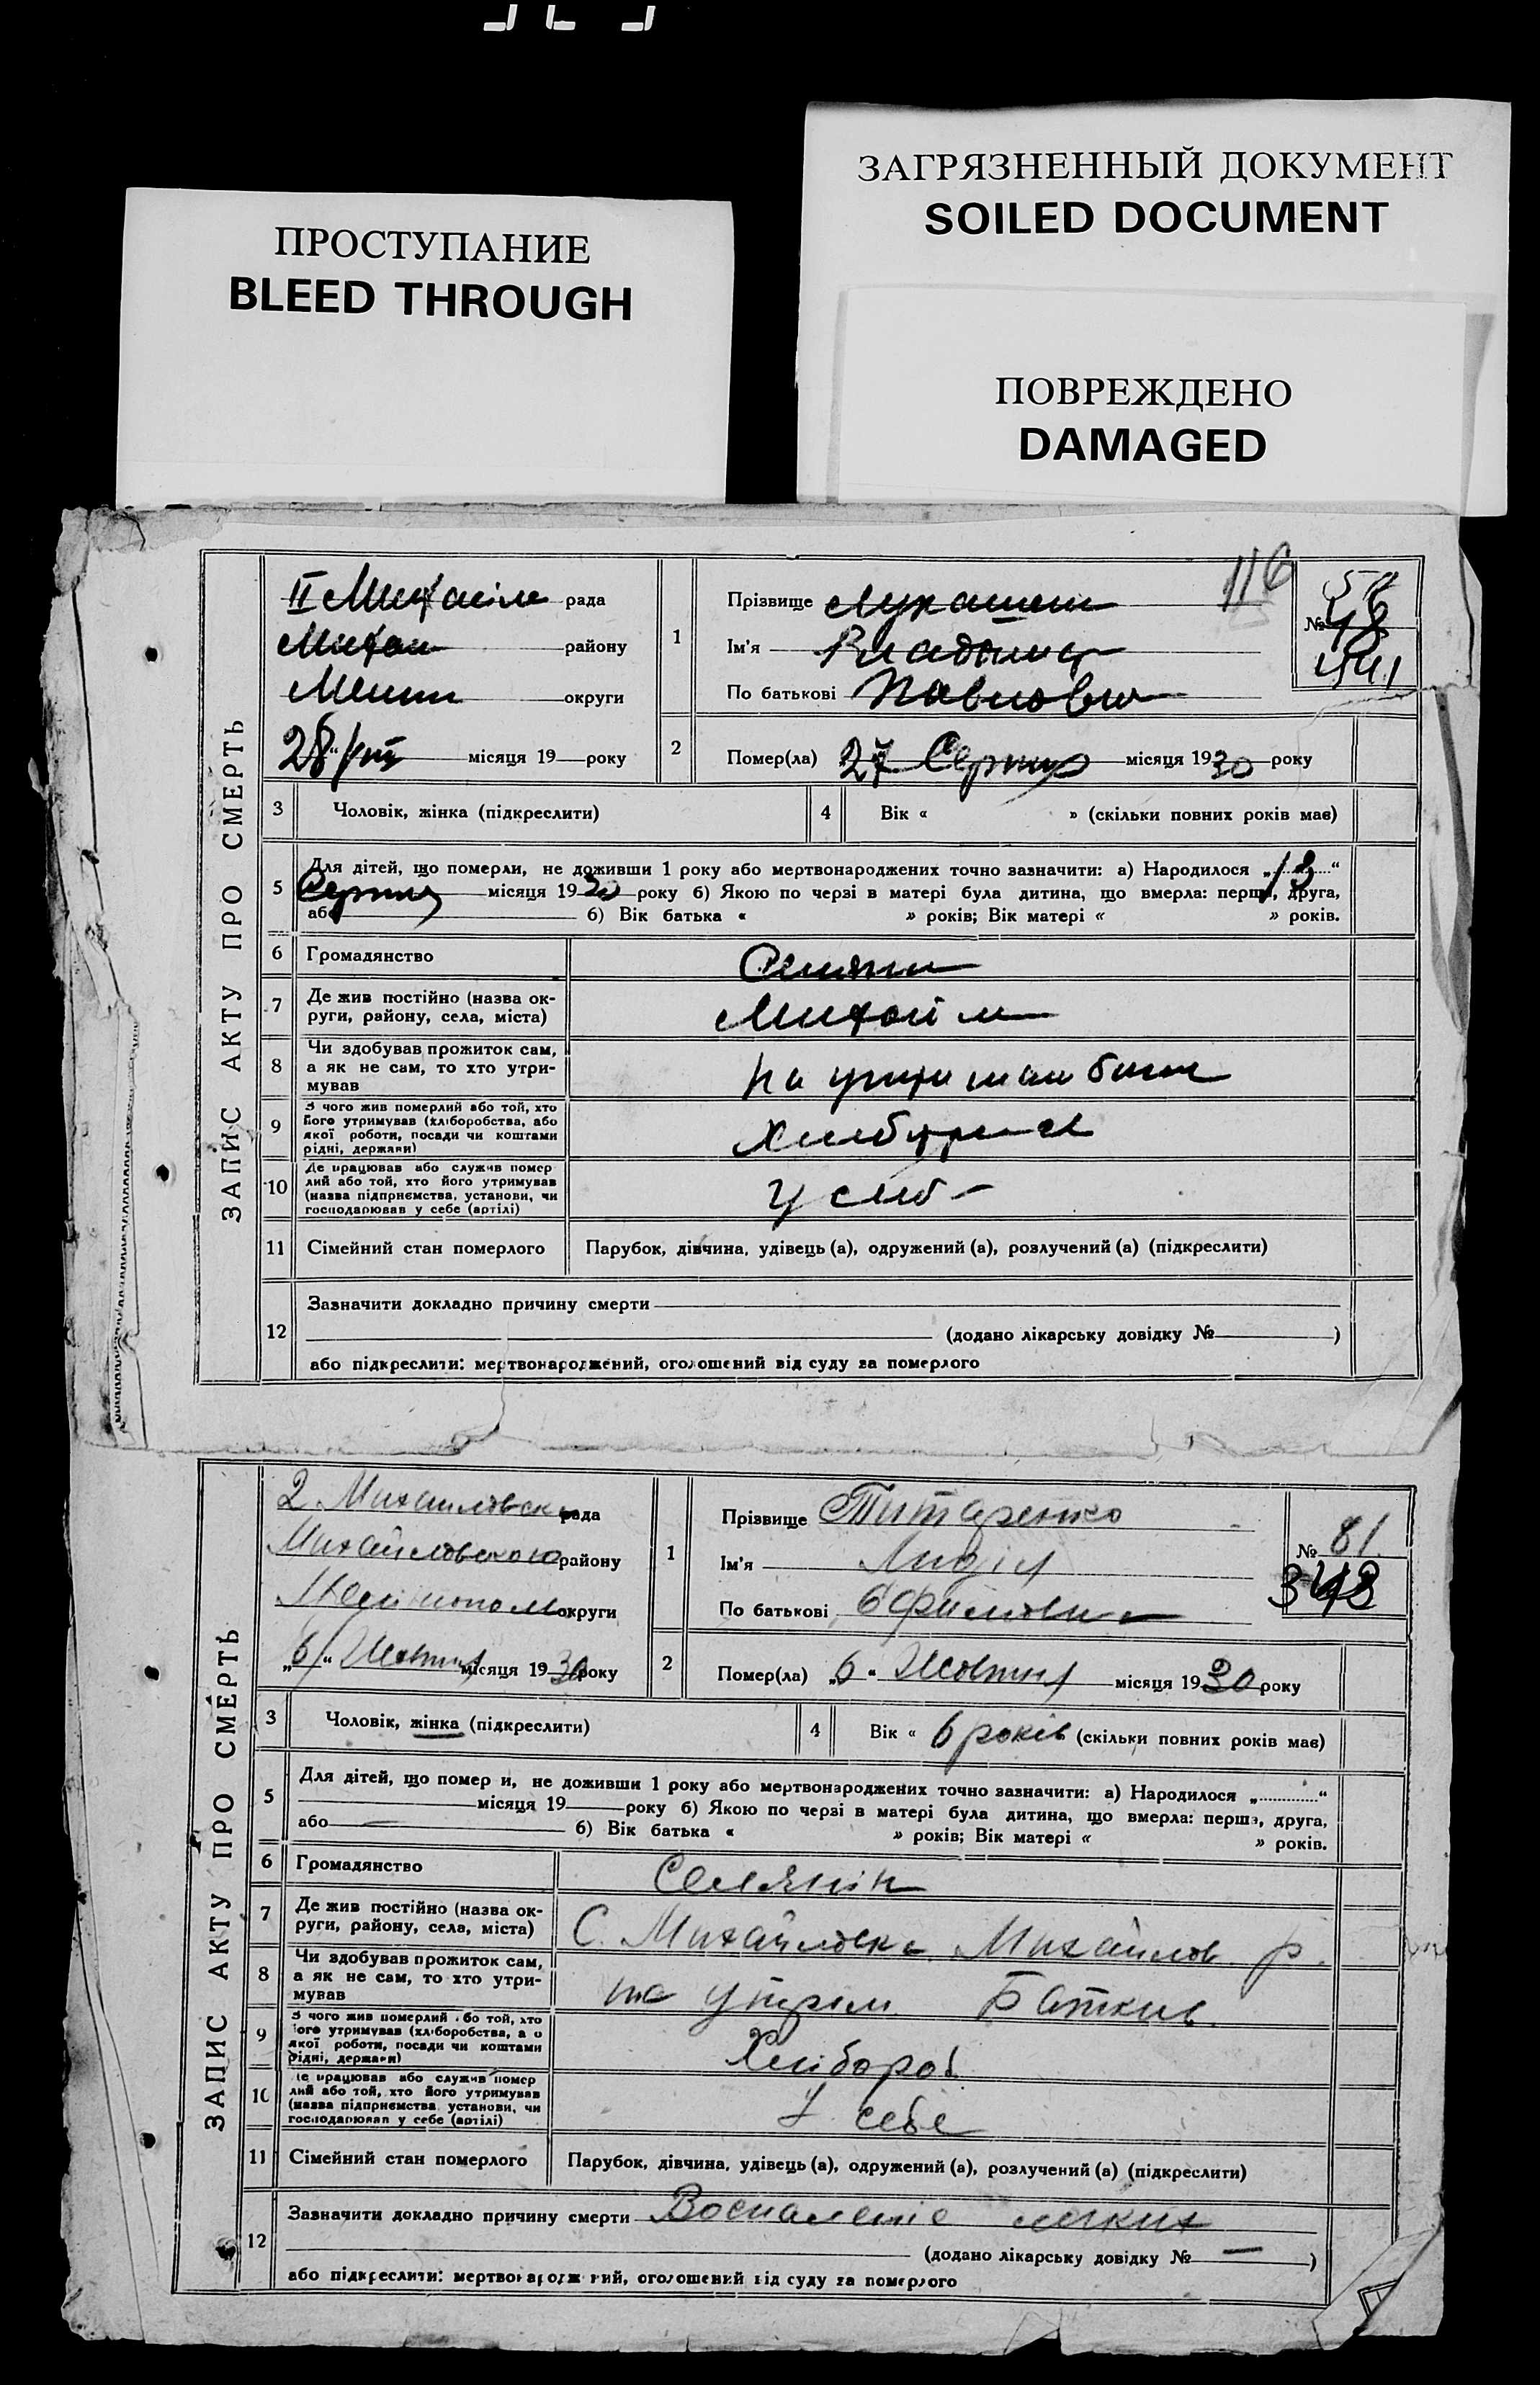 ПРОСТУПАНИЕ
BLEED THROUGH
ЗАГРЯЗНЕННЫЙ ДОКУМЕНТ
SOILED DOCUMENT
ПОВРЕЖДЕНО
DAMAGED
ЗАПИС АКТУ ПРО СМЕРТЬ
II рада
району
округи
28 місяця 19 року
116
1
Прізвище
Ім'я
По батькові
№ 48
2
Помер(ла) 27 Серпня місяця 1930 року
3 Чоловік, жінка (підкреслити)
4 Вік « » (скільки повних років має)
5 Для дітей, що померли, не доживши 1 року або мертвонароджених точно зазначити: а) Народилося „13“
Серпня місяця 1930 року б) Якою по черзі в матері була дитина, що вмерла: перша, друга,
або б) Вік батька « » років; Вік матері « » років.
6 Громадянство
7 Де жив постійно (назва ок-
руги, району, села, міста)
8 Чи здобував прожиток сам,
а як не сам, то хто утри-
мував
9 З чого жив померлий або той, хто
його утримував (хліборобства, або
якої роботи, посади чи коштами
рідні, держави)
10 Де працював або служив помер
лий або той, хто його утримував
(назва підприємства, установи, чи
господарював у себе (артілі)
у себ
11 Сімейний стан померлого Парубок, дівчина, удівець (а), одружений (а), розлучений (а) (підкреслити)
12 Зазначити докладно причину смерти
(додано лікарську довідку № )
або підкреслити: мертвонароджений, оголошений від суду за померлого
ЗАПИС АКТУ ПРО СМЕРТЬ
2 Михаиловск рада
Михайловского району
округи
„6“ Жовтня місяця 1930 року
1
Прізвище Титаренко
Ім'я Лидія
По батькові
№ 81
2
Помер(ла) „6“ Жовтня місяця 1930 року
3 Чоловік, жінка (підкреслити)
4 Вік « 6 років (скільки повних років має)
5 Для дітей, що помер и, не доживши 1 року або мертвонароджених точно зазначити: а) Народилося „ “
місяця 19 року б) Якою по черзі в матері була дитина, що вмерла: перша, друга,
або б) Вік батька « » років; Вік матері « » років.
6 Громадянство Селянін
7 Де жив постійно (назва ок-
руги, району, села, міста)
С. Михайловка Михайлов. р.
8 Чи здобував прожиток сам,
а як не сам, то хто утри-
мував
на утрим Батьків.
9 З чого жив померлий або той, хто
його утримував (хліборобства, або
якої роботи, посади чи коштами
рідні, держави)
Хлібороб
10 Де працював або служив помер
лий або той, хто його утримував
(назва підприємства установи, чи
господарював у себе (артілі)
У себе
11 Сімейний стан померлого Парубок, дівчина, удівець (а), одружений (а), розлучений (а) (підкреслити)
12 Зазначити докладно причину смерти Воспаленіе легких
(додано лікарську довідку № — )
або підкреслити: мертвонароджений, оголошений від суду за померлого